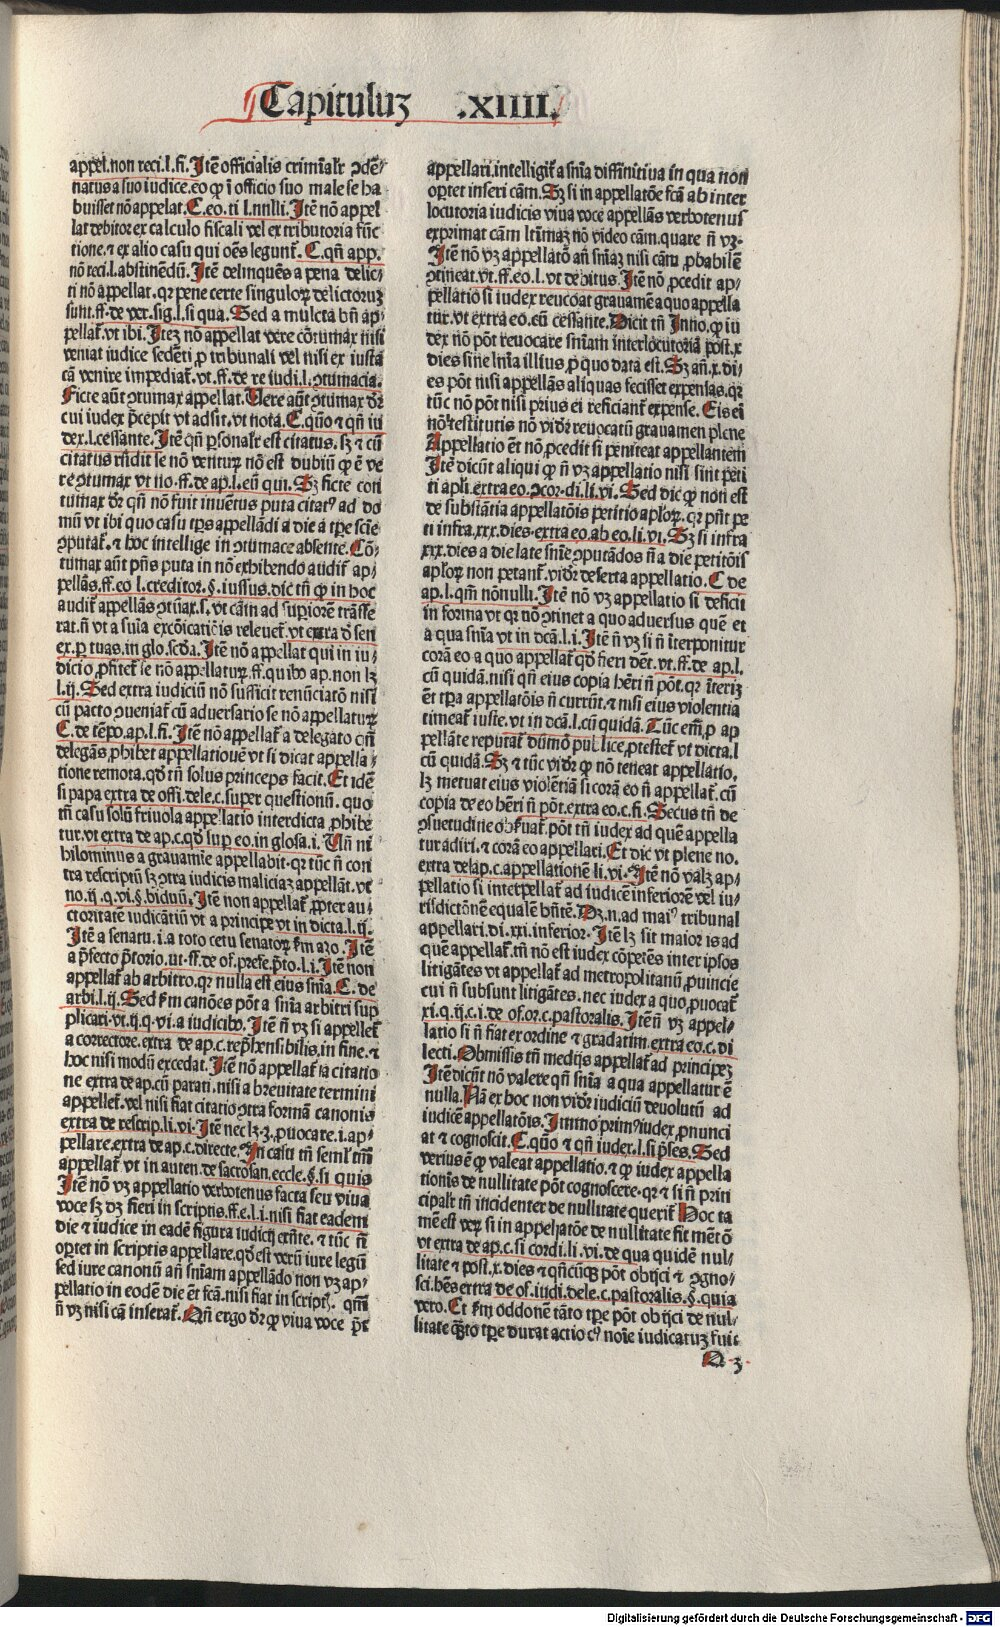 Capituluʒ .XIIII.
appel.non reci.l.fi. Itē officialis crimīalr̄ ꝯdē⸗
natus a suo iudice.eo ꝙ ī officio suo male se ha
buisset nō appelat. C.eo.ti l.nnlli. Itē nō appel
lat debitor ex calculo fiscali vel ex tributoria fūc
tione.⁊ ex alio casu qui oēs legunt᷑. C.qn̄ app.
nō reci.l.abstinēdū. Itē delinquēs a pena delic⸗
ti nō appellat.qꝛ pene certe singuloꝝ delictoruʒ
sunt.ff.de ver.sig.l.si qua. Sed a mulcta bn̄ ap⸗
pellat᷑.vt ibi. Iteʒ nō appellat vere cōtumax nisi
veniat iudice sedēti ꝓ tribunali vel nisi ex iusta
cā venire impediat᷑.vt.ff.de re iudi.l.ꝯtumacia.
Ficte aūt ꝯtumax appellat. Uere aūt ꝯtumax dr̄
cui iudex p̄cepit vt adsit.vt nota. C.quō ⁊ qn̄ iu
dex.l.cessante. Itē qn̄ ꝑsonalr̄ est citatus.sʒ ⁊ cū
citatus rn̄dit se nō venturꝝ nō est dubiū ꝙ ē ve
re ꝯtumax vt no.ff.de ap.l.eū qui. Sʒ ficte con
tumax dr̄ qn̄ nō fuit inuētus puta citatꝰ ad do
mū vt ibi quo casu tp̄s appellādi a die a tp̄e sciē
ꝯputat᷑.⁊ hoc intellige in ꝯtumace absente. Cō⸗
tumax aūt pn̄s puta in nō exhibendo audit᷑ ap⸗
pellās.ff.eo l.creditor.§.iussus.dic tn̄ ꝙ in hoc
audit᷑ appellās ꝯtūax.s.vt cām ad supiorē trāsfe
rat.n̄ vt a suīa excōicatiōis releuet᷑.vt extra d̄ sen
ex.ꝑ tuas.in glo.scd̄a. Itē nō appellat qui in iu⸗
dicio ꝓfitet᷑ se nō appellaturꝝ.ff.quibꝰ ap.non lʒ
l.ij. Sed extra iudiciū nō sufficit renūciatō nisi
cū pacto ꝯueniat᷑ cū aduersario se nō appellaturꝝ
C.de tēpo.ap.l.fi. Itē nō appellat᷑ a delegato qn̄
delegās ꝓhibet appellationē vt si dicat appella⸗
tione remota.qd̄ tn̄ solus princeps facit. Et idē
si papa extra de offi.dele.c.super questionū. quo
tn̄ casu solū friuola appellatio interdicta ꝓhibe
tur.vt extra de ap.c.qd̄ sup eo.in glosa.i. Un̄ ni
hilominus a grauamīe appellabit᷑.qꝛ tūc n̄ con
tra rescriptū sʒ ꝯtra iudicis maliciaʒ appellāt.vt
no.ij.q.vi.§.biduū. Itē non appellat᷑ ꝓpter au⸗
ctoritatē iudicātiū vt a principe vt in dicta.l.ij.
Itē a senatu.i.a toto cetu senatoꝝ ẜm aʒo. Itē
a p̄fecto p̄torio.ut.ff.de of.prefe.p̄to.l.i. Itē non
appellat᷑ ab arbitro.qꝛ nulla est eius sn̄ia. C.de
arbi.l.ij. Sed ẜm canōes pōt a sn̄ia arbitri sup
plicari.vt.ij.q.vi.a iudicibꝰ. Itē n̄ vʒ si appellet᷑
a correctore.extra de ap.c.rep̄hensibilis.in fine.⁊
hoc nisi modū excedat. Itē nō appellat᷑ ia citatio
ne extra de ap.cū parati.nisi a breuitate termini
appellet᷑.vel nisi fiat citatio ꝯtra formā canonis
extra de rescrip.li.vi. Itē nec lʒ.3.ꝓuocare.i.ap⸗
pellare.extra de ap.c.directe. In casu tn̄ seml̄ tm̄
appellat᷑ vt in auten.de sacrosan.eccle.§.si quis
Itē nō vʒ appellatio verbotenus facta seu viua
voce sʒ dʒ fieri in scriptis.ff.e.l.i.nisi fiat eadem
die ⁊ iudice in eadē figura iudicij exn̄te.⁊ tūc n̄
oꝑtet in scriptis appellare.qd̄ est verū iure legū
sed iure canonū an̄ sn̄iam appellādo non vʒ ap⸗
pellatio in eodē die ēt fcā.nisi fiat in script᷑. qm̄
n̄ vʒ nisi cā inserat᷑. Qn̄ ergo dr̄ ꝙ viua voce p̄t
appellari.intelligit᷑ a sn̄ia diffinitiua in qua non
oꝑtet inseri cām. Sʒ si in appellatōe fcā ab inter
locutoria iudicis viua voce appellās verbotenus
exprimat cām ltīmaʒ nō video cām.quare n̄ vʒ.
Itē nō vʒ appellatō an̄ sn̄iaʒ nisi cām ꝓbabilē
ꝯtineat.vt.ff.eo.l.vt debitus. Itē nō ꝓcedit ap⸗
pellatio si iudex reucoat grauamē a quo appella
tur.vt extra eo.cū cessante. Dicit tn̄ Inno.ꝙ iu
dex nō pōt reuocare sn̄iam interlocutoriā post.x
dies sine ln̄ia illius ꝓ quo data est. Sʒ an̄.x.di⸗
es pōt nisi appellās aliquas fecisset expensas.qꝛ
tūc nō pōt nisi prius ei reficiant᷑ expense. Eis eī
nō restitutis nō vidr̄ reuocatū grauamen plene
Appellatio ēt nō ꝓcedit si peniteat appellantem
Itē dicūt aliqui ꝙ n̄ vʒ appellatio nisi sint peti
ti apli.extra eo.ꝯcor.di.li.vi. Sed dic ꝙ non est
de substātia appellatōis petitio aploꝝ.qꝛ pn̄t pe
ti infra.xxx.dies.extra eo.ab eo.li.vi. Sʒ si infra
xxx.dies a die late sn̄ie ꝯputādos n̄ a die petitōis
aploꝝ non petant᷑.vidr̄ deserta appellatio. C de
ap.l.qm̄ nōnulli. Itē nō vʒ appellatio si deficit
in forma vt qꝛ nō ꝯtinet a quo aduersus quē et
a qua sn̄ia vt in dcā.l.i. Itē n̄ vʒ si n̄ īterponitur
corā eo a quo appellat᷑ qd̄ fieri dēt.vt.ff.de ap.l.
cū quidā.nisi qn̄ eius copia hēri n̄ pōt.qꝛ īteriʒ
ēt tp̄a appellatōis n̄ currūt.⁊ nisi eius violentia
timeat᷑ iuste.vt in dcā.l.cū quidā. Tūc em̄ ꝓ ap
pellāte reputat᷑ dūmō publice ꝓtestet᷑ vt dicta.l
cū quidā. Sʒ ⁊ tūc vidr̄ ꝙ nō teneat appellatio.
lʒ metuat eius violētiā si corā eo n̄ appellat᷑.cū
copia de eo hēri n̄ pōt.extra eo.c.fi. Secus tn̄ de
ꝯsuetudine obẜuat᷑.pōt tn̄ iudex ad quē appella
tur adiri.⁊ corā eo appellari. Et dic vt plene no.
extra de ap.c.appellationē li.vi. Itē nō valʒ ap⸗
pellatio si intetpellat᷑ ad iudicē inferiorē vel iu⸗
risdictōnē equalē hn̄tē. Dʒ.n.ad maiꝰ tribunal
appellari.di.xxi.inferior. Itē lʒ sit maior is ad
quē appellat᷑.tn̄ nō est iudex cōpetēs inter ipsos
litigātes vt appellat᷑ ad metropolitanū ꝓuincie
cui n̄ subsunt litigātes.nec iudex a quo ꝓuocat᷑
xi.q.ij.c.i.de of.or.c.pastoralis. Itē n̄ vʒ appel⸗
latio si n̄ fiat ex ordine ⁊ gradatim.extra eo.c.di
lecti. Obmissis tn̄ medijs appellat᷑ ad principeʒ
Itē dicūt nō valere qn̄ sn̄ia a qua appellatur ē
nulla. Nā ex hoc non vidr̄ iudiciū deuolutū ad
iudicē appellatōis. Immo primꝰ iudex ꝓnunci
at ⁊ cognoscit. C.quō ⁊ qn̄ iudex.l.si p̄ses. Sed
verius ē ꝙ valeat appellatio.⁊ ꝙ iudex appella
tionis de nullitate pōt cognoscere.qꝛ ⁊ si n̄ prin
cipalr̄ tn̄ incidenter de nullitate querit᷑ Hoc ta
mē est verꝝ si in appellatōe de nullitate fit mētō
vt extra de ap.c.si cordi.li.vi.de qua quidē nul⸗
litate ⁊ post.x.dies ⁊ qn̄cūqꝫ pōt obijci ⁊ ꝯgno⸗
sci.hēs extra de of.iudi.dele.c.pastoralis.§.quia
vero. Et ẜm oddonē tāto tp̄e pōt obijci de nul⸗
litate quāto tp̄e durat actio cꝰ noīe iudicatuʒ fuit
Q 3
Digitalisierung gefördert durch die Deutsche Forschungsgemeinschaft - DFG